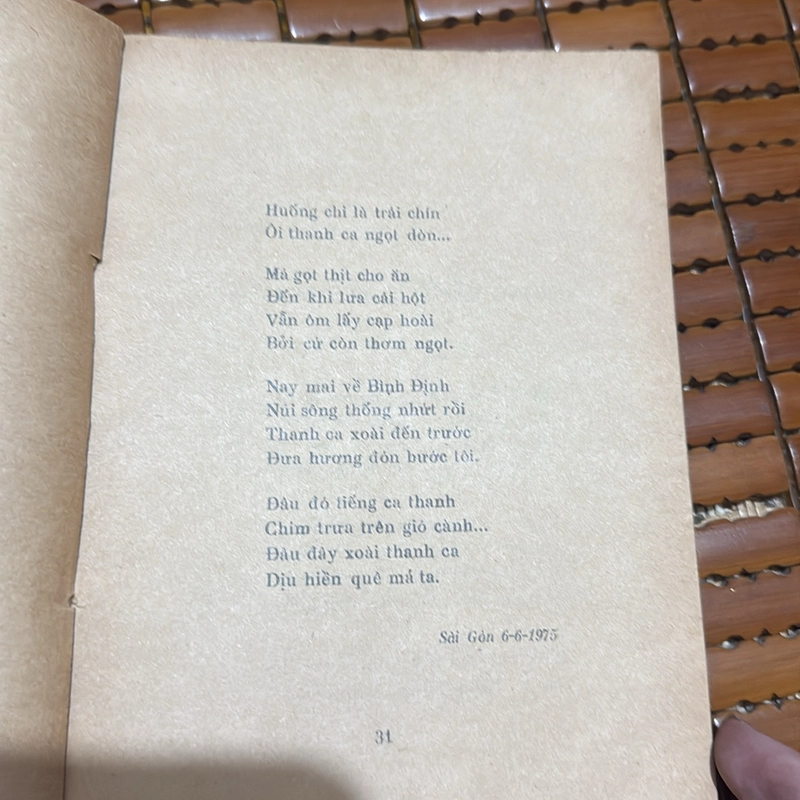 Huống chi là trái chín
Ôi thanh ca ngọt dòn...
Má gọt thịt cho ăn
Đến khi lừa cái hột
Vẫn ôm lấy cạp hoài
Bởi cứ còn thơm ngọt.
Nay mai về Bình Định
Núi sông thống nhứt rồi
Thanh ca xoài đến trước
Đưa hương đón bước tôi.
Đâu đó tiếng ca thanh
Chim trưa trên gió cành...
Đâu đây xoài thanh ca
Dịu hiền quê má ta.
Sài Gòn 6-6-1975
31